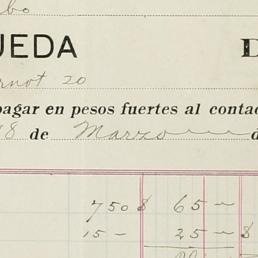 bo
UEDA D
rnot 20
pagar en pesos fuertes al conta
18 de Marzo d
750 $ 65 —
15 — 25 — $